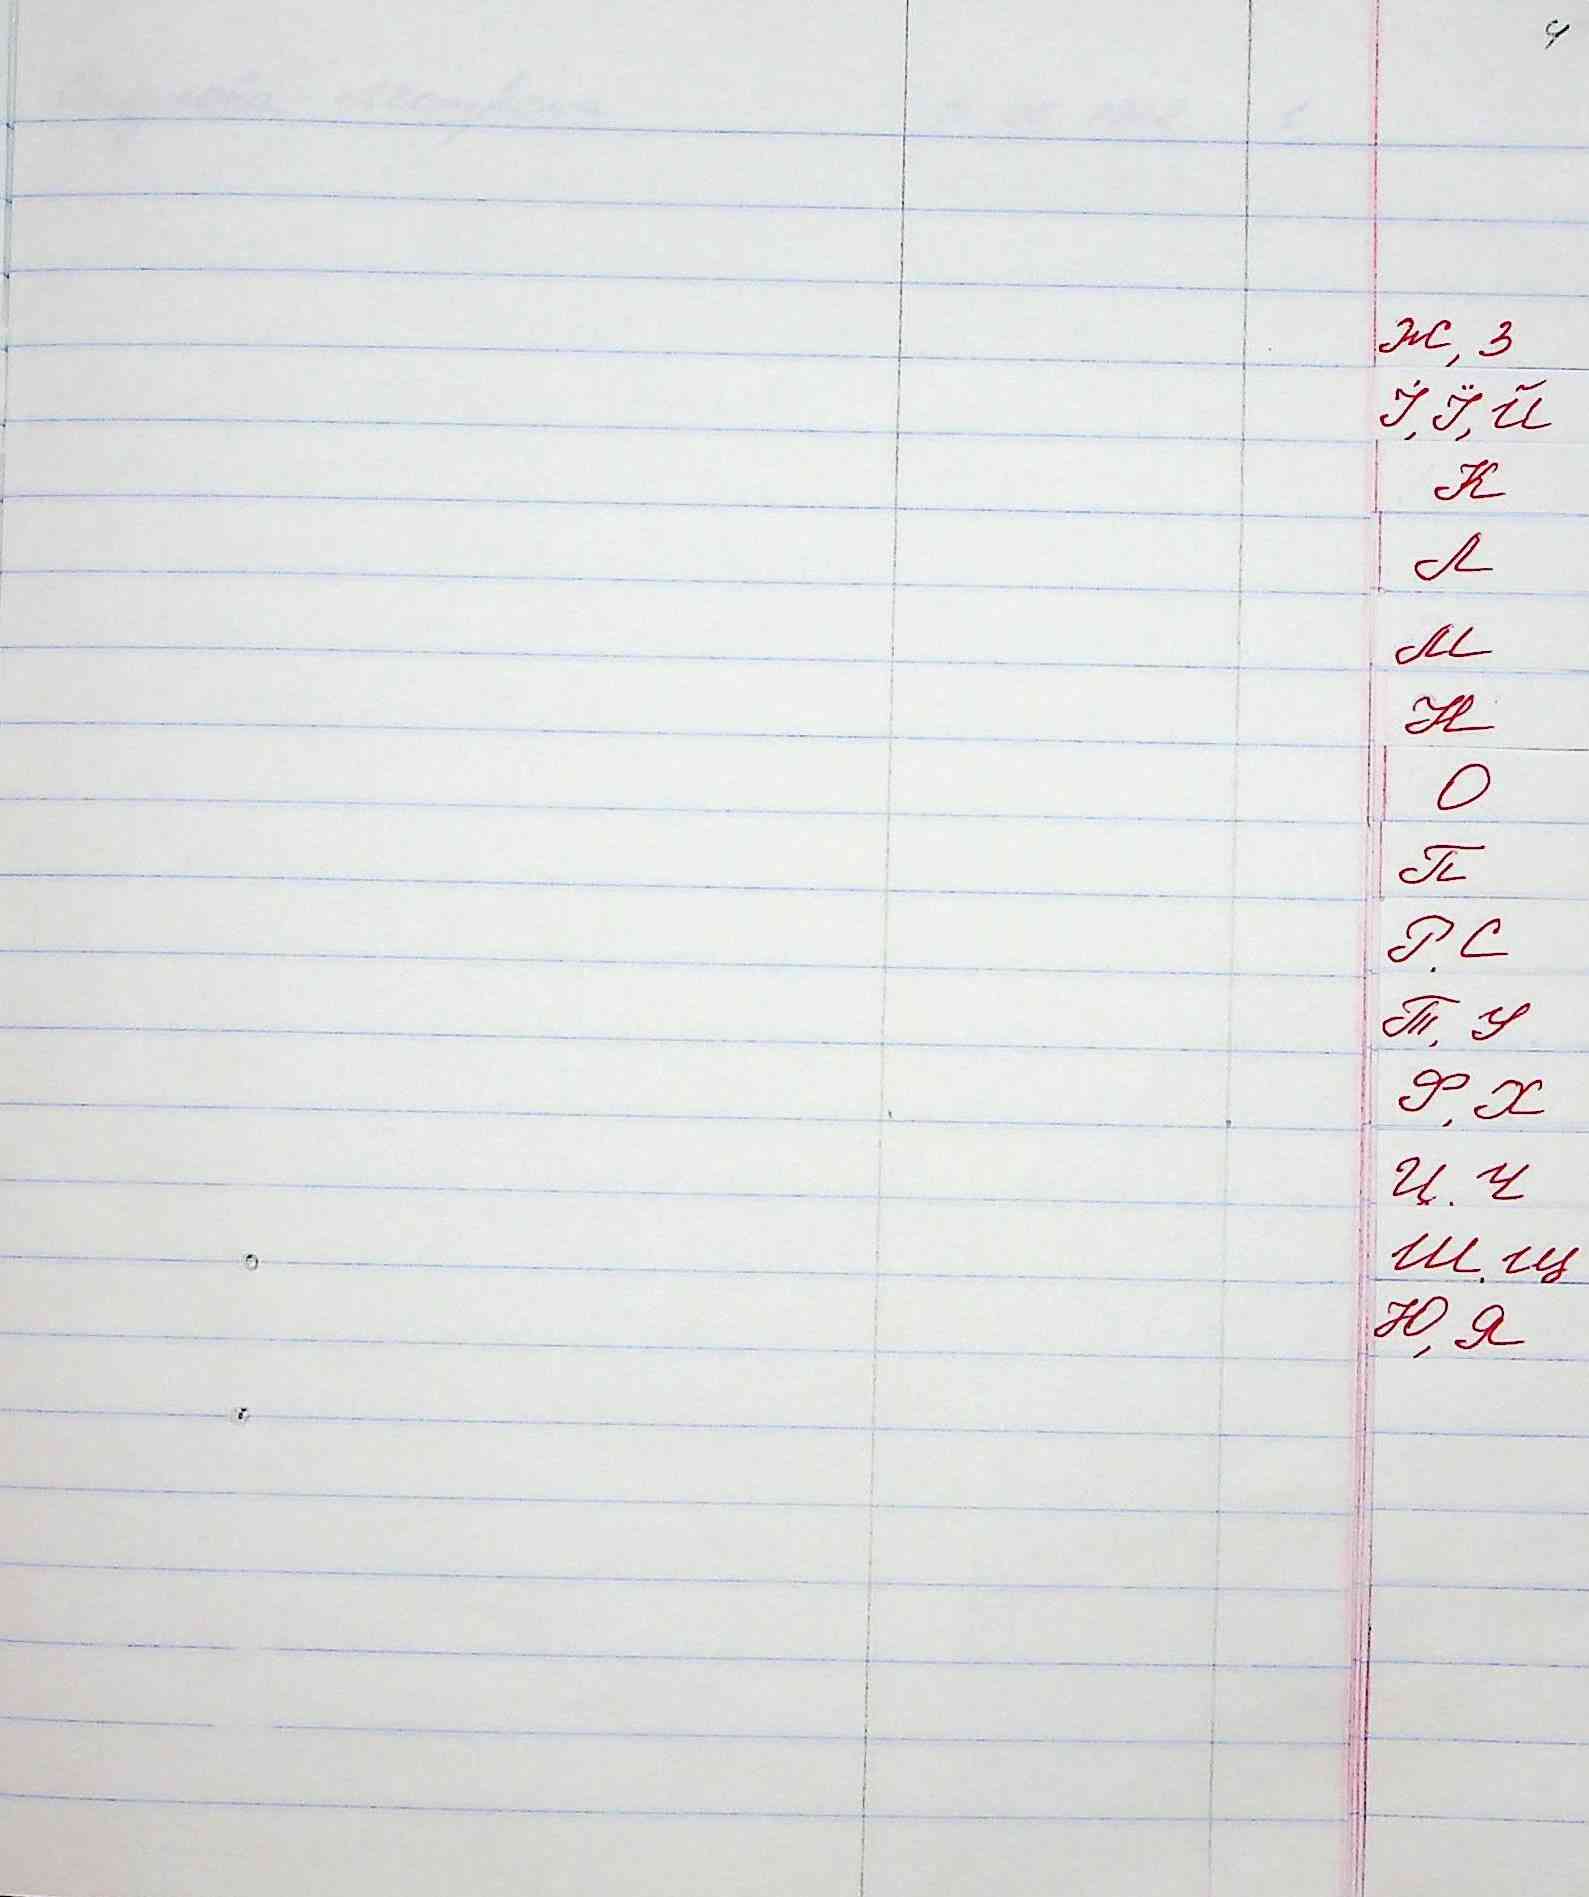 4
Ж, З
І, Ї, Й
К
Л
М
Н
О
П
Р. С
Т, У
Ф, Х
Ц. Ч
Ш. Щ
Ю, Я